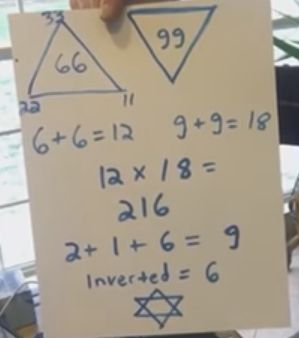 33
66 99
22 11
6+6=12 9+9=18
12 x 18 =
216
2+1+6= 9
Inverted = 6